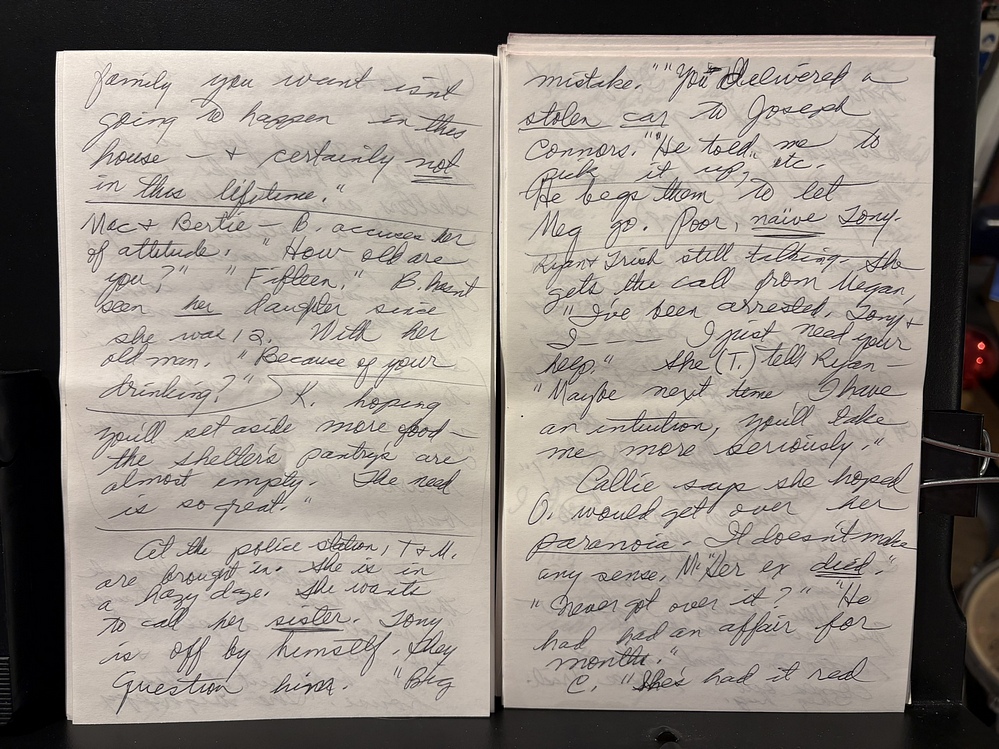 family you want isn't
going to happen in this
house — & certainly not
in this lifetime."
Mac & Bertie — B. accuses her
of attitude. "How old are
you?" "Fifteen." B. hasn't
seen her daughter since
she was 12. With her
old man. "Because of your
drinking?" K. hoping
you'll set aside more food —
the shelter's pantrys are
almost empty. The need
is so great."
At the police station, T & M.
are brought in. She is in
a hazy daze. She wants
to call her sister. Tony
is off by himself. They
question him. "Big
mistake." "You delivered a
stolen car to Joseph
Connors." "He told me to
pick it up," etc.
He begs them to let
Meg go. Poor, naïve Tony.
Ryan & Trish still talking. She
gets the call from Megan,
"I've been arrested, Tony &
I ---- I just need your
help." She (T.) tells Ryan —
"Maybe next time I have
an intuition, you'll take
me more seriously."
Callie says she hoped
O. would get over her
paranoia. It doesn't make
any sense. M. "Her ex died."
"Never got over it?" "He
had had an affair for
months."
C. "She's had it real